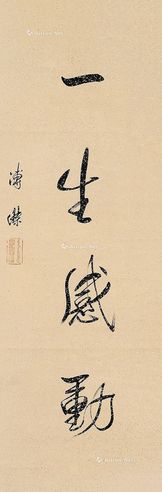 一生感動
溥傑